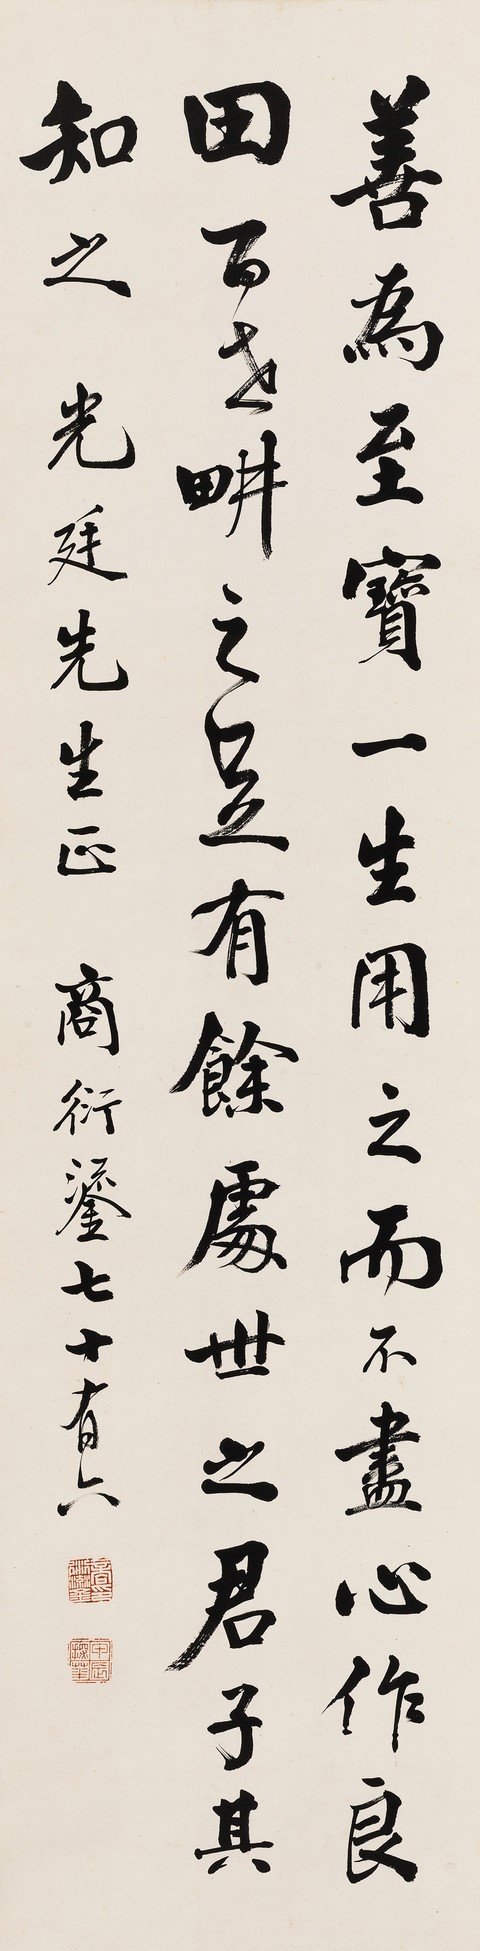 善為至寶一生用之而不盡心作良
田百世畊之足有餘處世之君子其
知之 光廷先生正 商衍鎏七十有六
商衍鎏印
甲辰探花